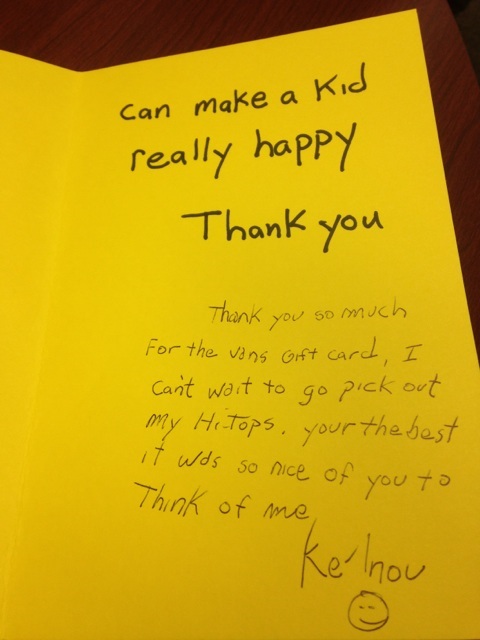 Can make a Kid
really happy
Thank you
Thank you so much
For the vans Gift card, I
can't wait to go pick out
my Hi-Tops. your the best
it was so nice of you to
Think of me
Ke'Inov